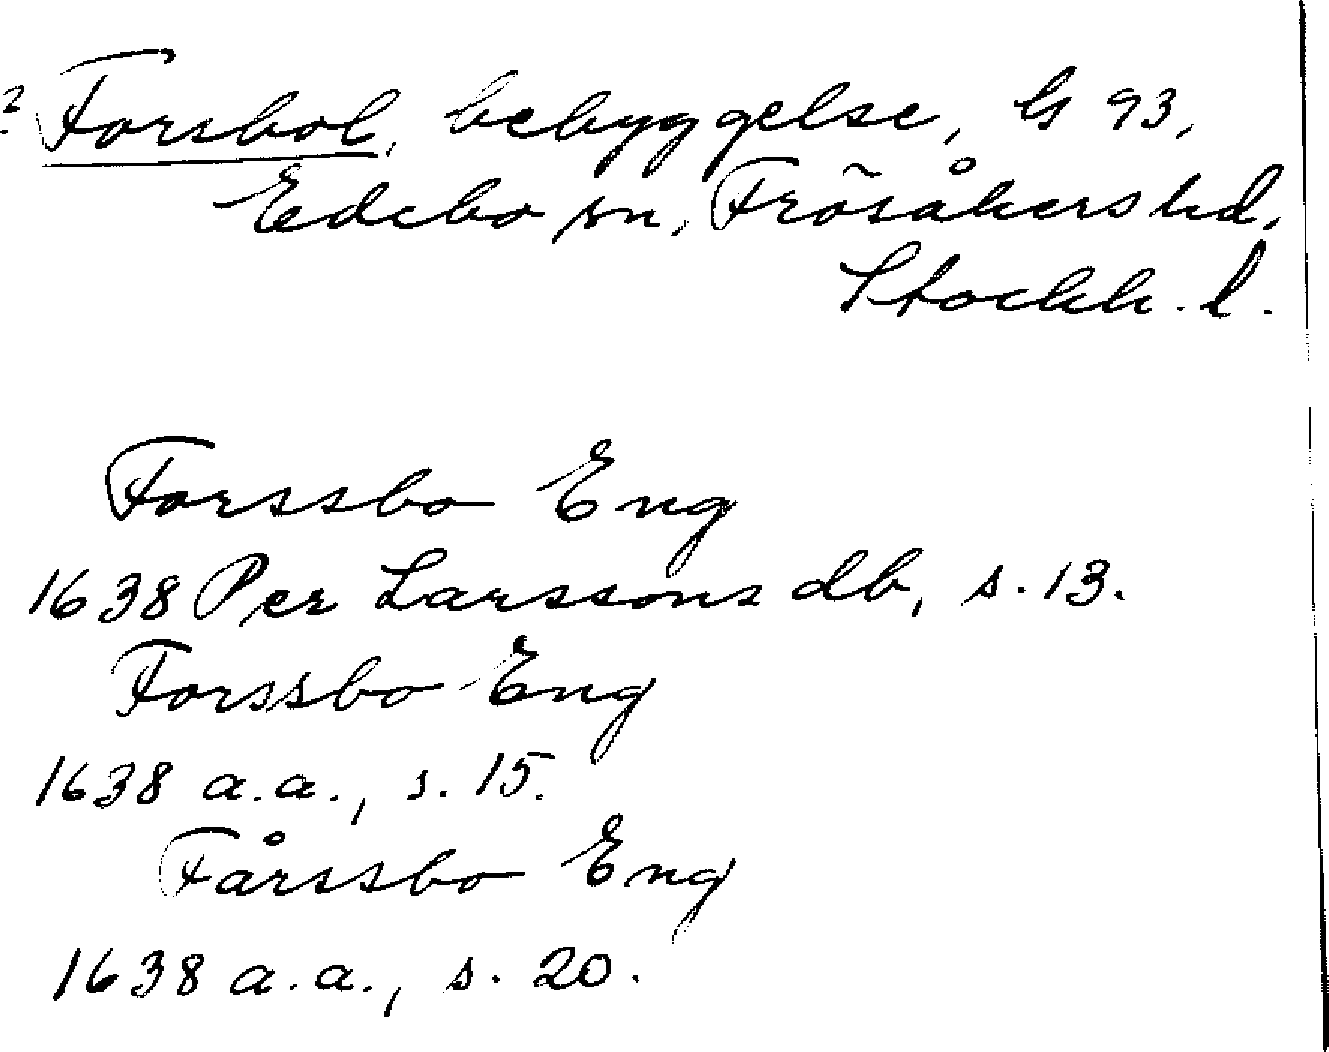 ? Forsbol, bebyggelse, G 93,
Edebo sn, Frösåkers hd,
Stockh. l.
Forssbo Eng
1638 Per Larssons db, s. 13.
Forssbo Eng
1638 a.a., s. 15.
Fårssbo Eng
1638 a.a., s. 20.